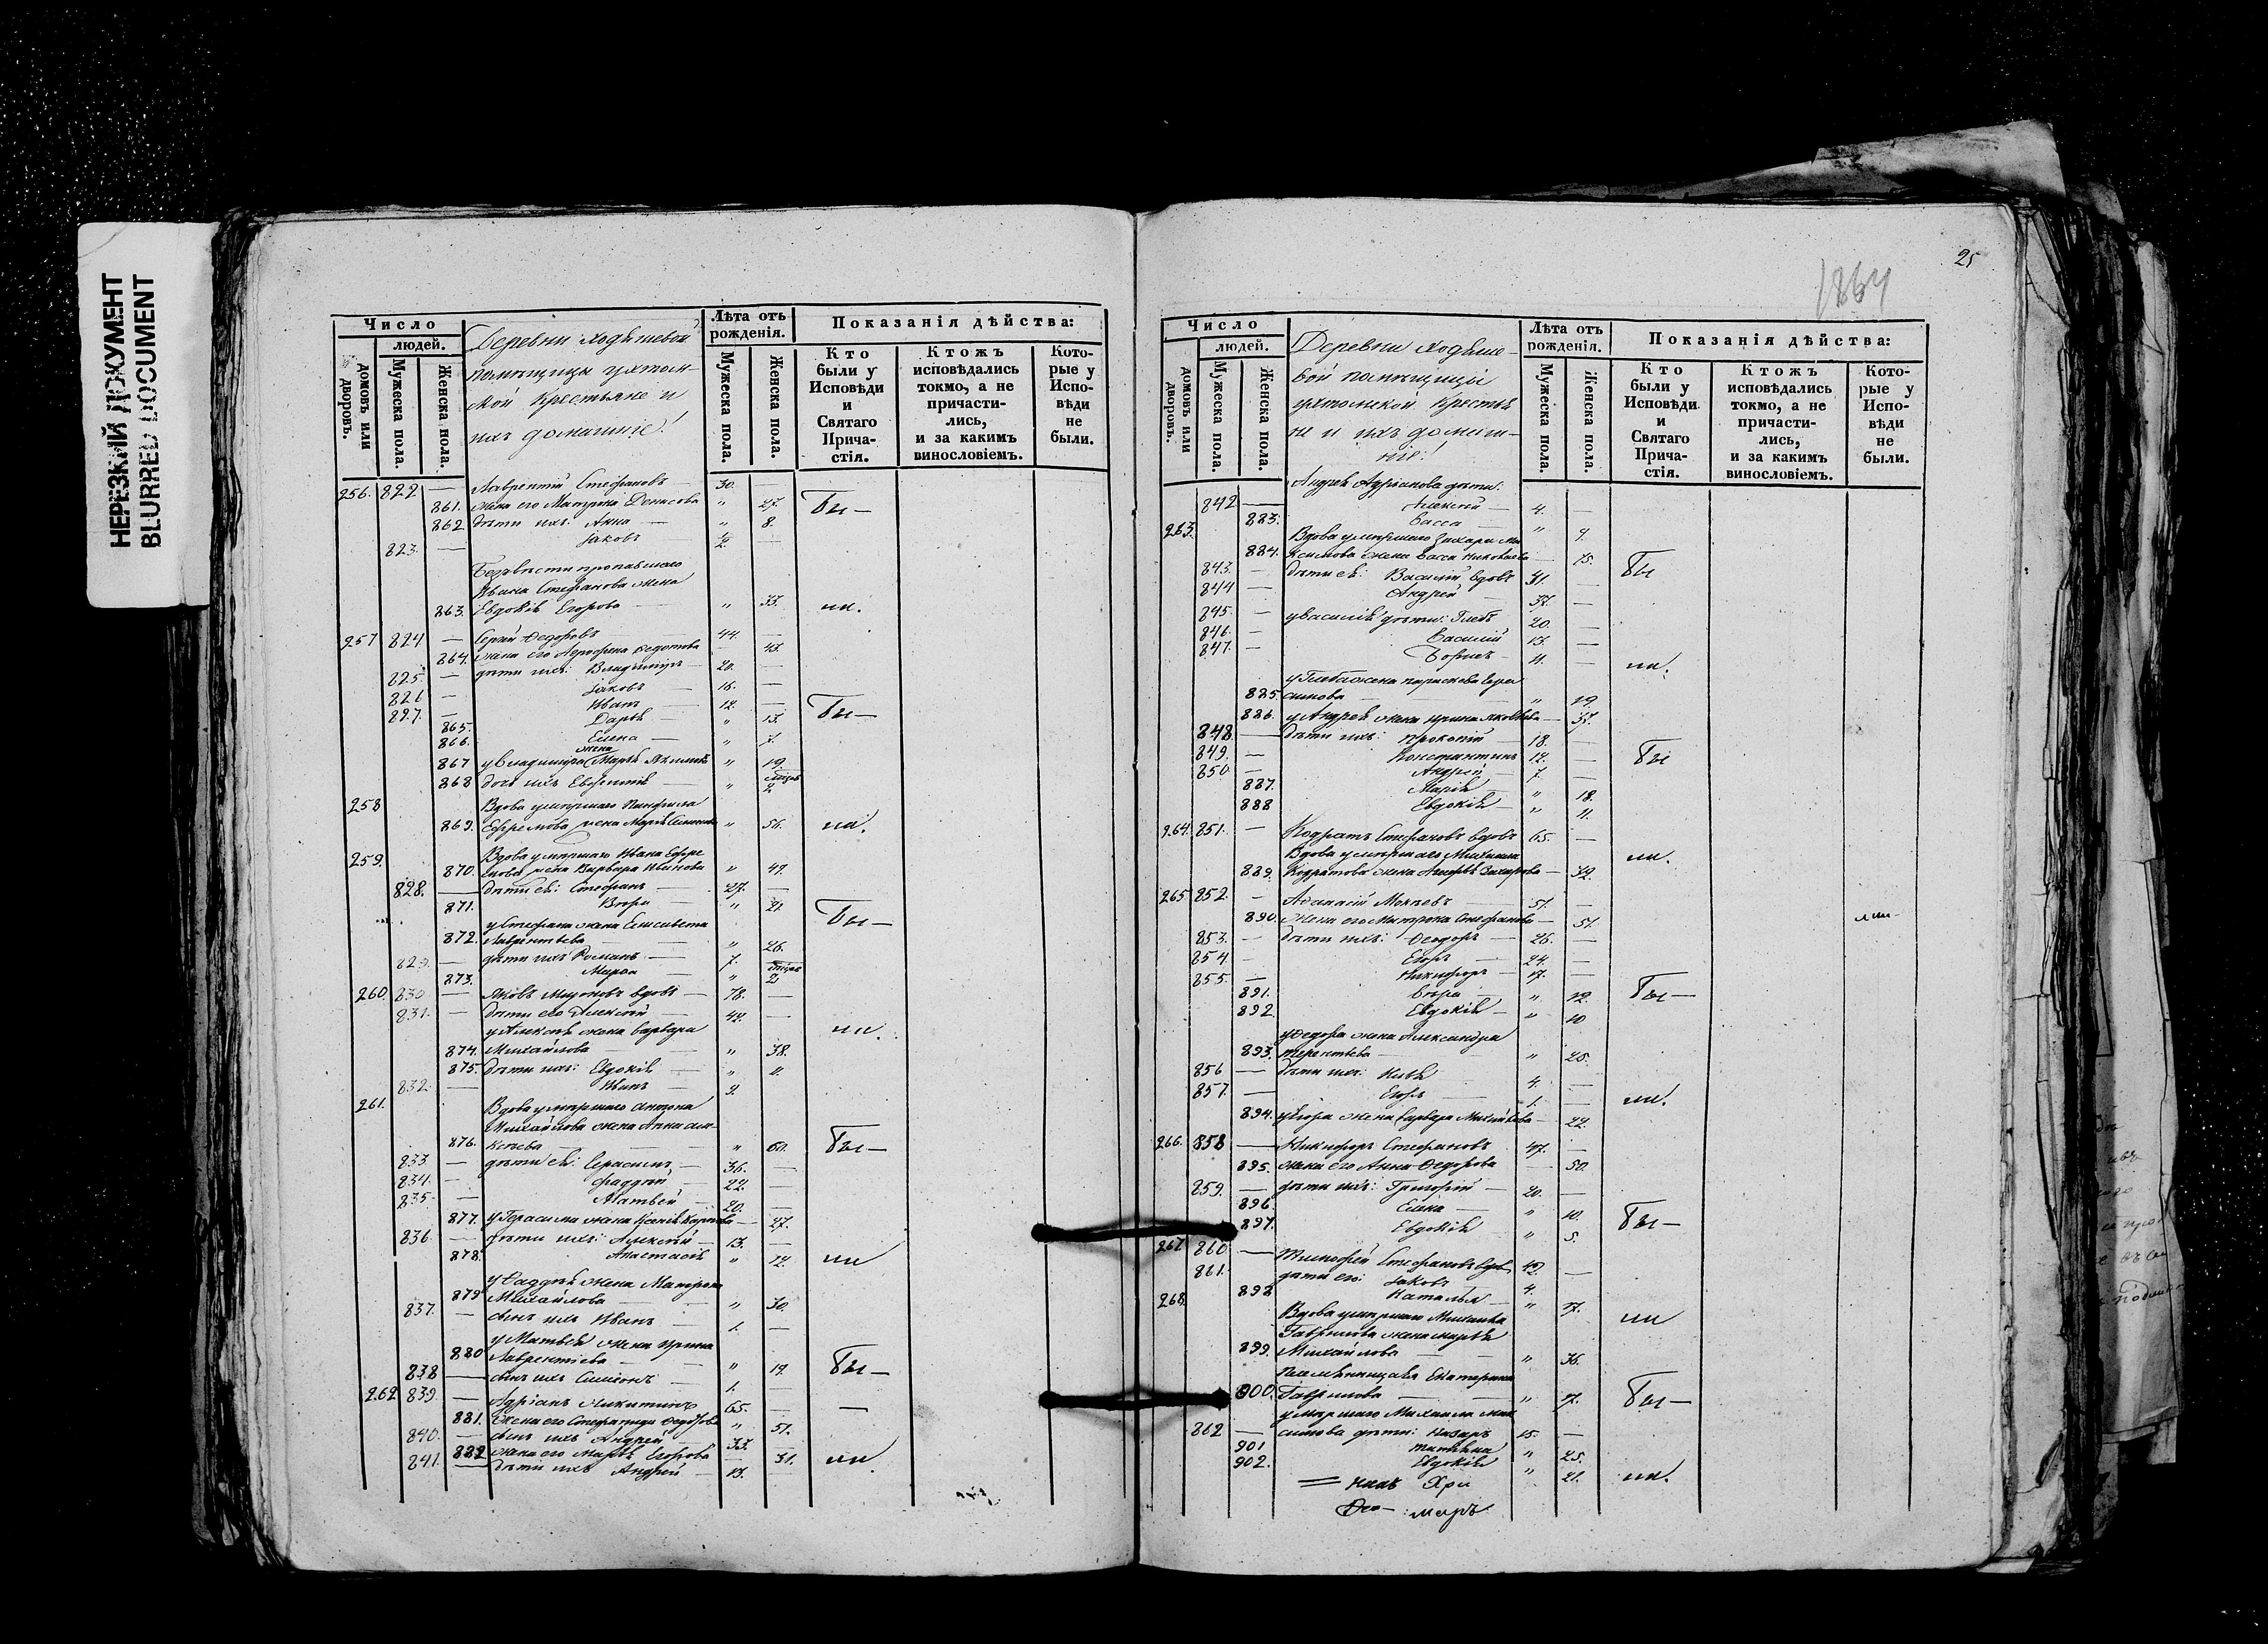 НЕРЕЗКИЙ ДОКУМЕНТ
BLURRED DOCUMENT
Число
домовъ или дворовъ.
людей.
Мужеска пола.
Женска пола.
Деревни
крестьяне и
ихъ домашніе!
Лѣта отъ рожденія.
Мужеска пола.
Женска пола.
Показанія дѣйства:
Кто были у Исповѣди и Святаго Прича-стія.
Ктожъ исповѣдались токмо, а не причасти-лись, и за какимъ винословіемъ.
Кото-рые у Испо-вѣди не были.
256. 822. — Лаврентій Стефановъ — 30. —
861. жена его Матрена Денисова " 27. Бы—
862 дѣти ихъ: Анна — " 8.
823. — Іаковъ —
Безвѣсти пропавшаго
Ивана Стефанова жена
863. Евдокія Егорова — " 33. ли.
257 824 — Сергій Ѳедоровъ 44. —
864. жена его Федотова — 43.
825. — дѣти ихъ: Владиміръ — 20. —
826 — Іаковъ — 16. —
827. — Иванъ 12. —
865. Дарія — " 13. Бы—
866. Елена — " 7.
867 у Владиміра жена Марія " 19.
868 дочь ихъ Евфимія — "
258 Вдова умершаго Панфила
869. Ефремова жена Марія " 56. ли.
259. Вдова умершаго Ивана Ефре
870. мова жена Варвара Иванова " 49.
828. — дѣти ея: Стефанъ — 27. —
871. Вѣра — " 21 Бы—
у Стефана жена Елисавета
872. Лаврентьева — " 26.
829. — дѣти ихъ Романъ — 7.
873. — "
260. 830 — Яковъ Мироновъ вдовъ — 78. —
831. — дѣти его Алексѣй — 42. —
у Алексѣя жена Варвара ли.
874. Михайлова — " 38.
875. дѣти ихъ: Евдокія — " 11.
832. — Иванъ — 9.
261. Вдова умершаго Антона
Михайлова жена Анна Але-
876. ксѣева — " 60. Бы—
833 — дѣти ея: Герасимъ — 36. —
834. — Фаддей — 22. —
835. — Матвѣй — 20. —
877. у Герасима жена Ксенія Карпова — 27.
836 — дѣти ихъ: Алексѣй — 13. —
878. Анастасія " 12. ли
у Фаддея жена Матрона
879 Михайлова — " 30.
837. — сынъ ихъ Иванъ — 1. —
у Матвѣя жена Ирина
880 Лаврентіева — " 19. Бы—
838 — сынъ ихъ Симеонъ — 1. —
262 839. — Адріанъ Никитинъ 65. — —
881. жена его Стефанида " 51.
840. — сынъ ихъ Андрей — 33. —
882 жена его Марія Егорова — 31. ли
841. — дѣти ихъ Андрей — 13.
25
1864
Число
домовъ или дворовъ.
людей.
Мужеска пола.
Женска пола.
Деревни
вой помѣщицы
крестья
не и ихъ домаш-
ніе!
Лѣта отъ рожденія.
Мужеска пола.
Женска пола.
Показанія дѣйства:
Кто были у Исповѣди и Святаго Прича-стія.
Ктожъ исповѣдались токмо, а не причасти-лись, и за какимъ винословіемъ.
Кото-рые у Испо-вѣди не были.
Андрея Адріанова дѣти:
842 — Алексій — 4. —
883. Васса — " 9.
263. Вдова умершаго Захара Ма
884. ксимова жена Васса Николаева — 75. Бы
843. — дѣти ея: Василій вдовъ —
844 — Андрей — 37. —
845. — у Василія дѣти: Глебъ 20. —
846. — Василій 13. —
847. — Борисъ — 11. — ли.
у Глеба жена Параскева Гера
885. симова — " 19.
886. у Андрея жена Ирина Яковлева — 37.
848 — дѣти ихъ: Прокопій — 18. —
849. — Константинъ 12. — Бы
850. — Андрей — 7. —
887. Марія — " 18.
888 Евдокія — " 11.
264. 851. — Кодратъ Стефановъ вдовъ 65. —
Вдова умершаго Михаила ли.
889. Кодратова жена Захарова — 32.
265 852. — Аѳанасій Мокѣевъ — 51. —
890. жена его Матрона Стефанова — 51.
853. — дѣти ихъ: Ѳеодоръ — 26. —
854. — Егоръ — 24. —
855. — Никифоръ — 17. —
891. Вѣра — " 12. Бы—
892 Евдокія — " 10
у Ѳедора жена Александра
893. Терентьева — " 25.
856 — дѣти ихъ: Илія 4. —
857. — Егоръ — 1. — ли.
894. у Егора жена Варвара — 22.
266. 858 — Никифоръ Стефановъ 47. —
895. жена его Анна Ѳедорова — 50.
859. — дѣти ихъ: Григорій — 20. —
896. Елена — " 10. Бы—
897. Евдокія " 5.
267. 860. — Тимофей Стефановъ вдовъ 42. —
861. — дѣти его: Іаковъ — 4.
898 Наталья — " 17. ли
268. Вдова умершаго Михаила
Гаврилова жена Марія
899. Михайлова — " 36.
Племянница Екатерина
900. Гаврилова — " 17. Бы—
умершаго Михаила Мак
862 — симова дѣти: Назаръ 15. —
901 Татіана " 25.
902. Евдокія " 21. ли.